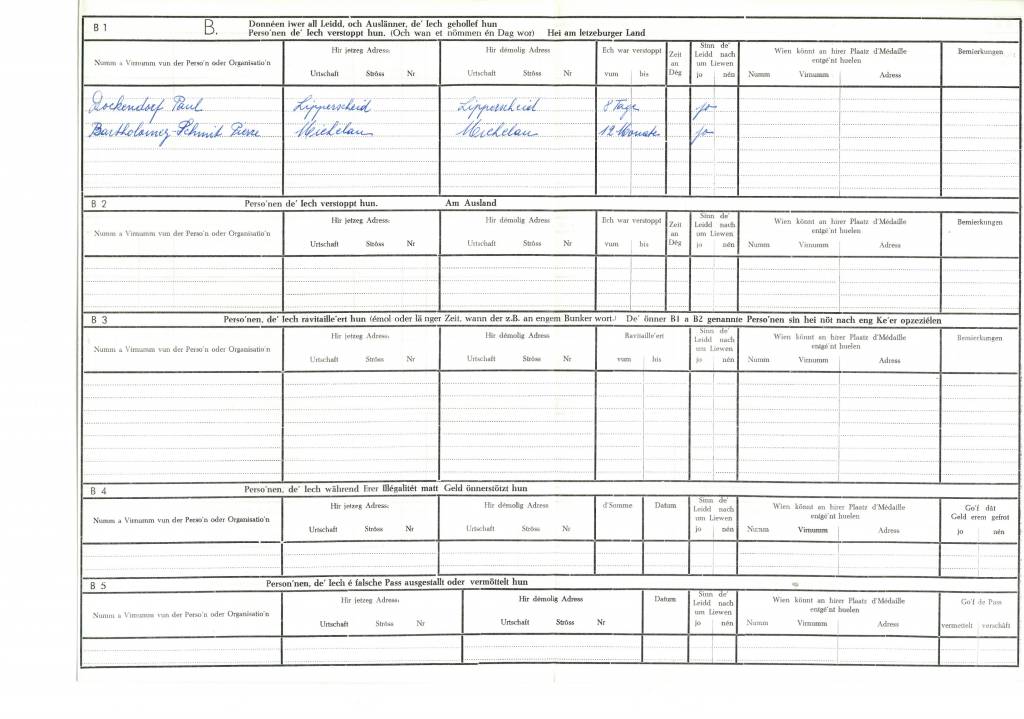 B 1 B. Donnéen iwer all Leidd, och Auslänner, de' Iech gehollef hun
Perso'nen de' Iech verstoppt hun. (Och wan et nömmen én Dag wor) Hei am letzeburger Land
Numm a Virnumm vun der Perso'n oder Organisatio'n
Hir jetzeg Adress:
Urtschaft Ströss Nr
Hir démolig Adress
Urtschaft Ströss Nr
Ech war verstoppt
vum bis
Zeit
an
Dég
Sinn de'
Leidd nach
um Liewen
jo nén
Wien könnt an hirer Plaatz d'Médaille
entgé'nt huelen
Numm Virnumm Adress
Bemierkungen
Dockendorf Paul Lipperscheid Lipperscheid 8 Tage jo
Bartholomey-Schmit Pierre Michelau Michelau 12 Monate jo
B 2 Perso'nen de' Iech verstoppt hun. Am Ausland
Numm a Virnumm vun der Perso'n oder Organisatio'n
Hir jetzeg Adress:
Urtschaft Ströss Nr
Hir démolig Adress
Urtschaft Ströss Nr
Ech war verstoppt
vum bis
Zeit
an
Dég
Sinn de'
Leidd nach
um Liewen
jo nén
Wien könnt an hirer Plaatz d'Médaille
entgé'nt huelen
Numm Virnumm Adress
Bemierkungen
B 3 Perso'nen, de' Iech ravitaille'ert hun (émol oder länger Zeit, wann der z.B. an engem Bunker wort.) De' önner B1 a B2 genannte Perso'nen sin hei nöt nach eng Ke'er opzeziélen
Numm a Virnumm vun der Perso'n oder Organisatio'n
Hir jetzeg Adress:
Urtschaft Ströss Nr
Hir démolig Adress
Urtschaft Ströss Nr
Ravitaille'ert
vum bis
Sinn de'
Leidd nach
um Liewen
jo nén
Wien könnt an hirer Plaatz d'Médaille
entgé'nt huelen
Numm Virnumm Adress
Bemierkungen
B 4 Perso'nen, de' Iech während Erer Illégalitét matt Geld önnerstötzt hun
Numm a Virnumm vun der Perso'n oder Organisatio'n
Hir jetzeg Adress:
Urtschaft Ströss Nr
Hir démolig Adress
Urtschaft Ströss Nr
d'Somme
Datum
Sinn de'
Leidd nach
um Liewen
jo nén
Wien könnt an hirer Plaatz d'Médaille
entgé'nt huelen
Numm Virnumm Adress
Go'f dât
Geld erem gefrot
jo nén
B 5 Person'nen, de' Iech é falsche Pass ausgestallt oder vermöttelt hun
Numm a Virnumm vun der Perso'n oder Organisatio'n
Hir jetzeg Adress:
Urtschaft Ströss Nr
Hir démolig Adress
Urtschaft Ströss Nr
Datum
Sinn de'
Leidd nach
um Liewen
jo nén
Wien könnt an hirer Plaatz d'Médaille
entgé'nt huelen
Numm Virnumm Adress
Go'f de Pass
vermettelt verschâft